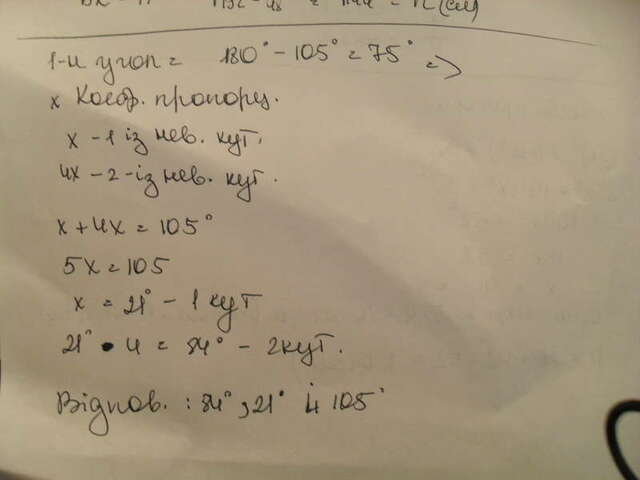 1-й угол = 180° - 105° = 75° =>
x Коеф. пропорц.
x - 1 із нев. кут.
4x - 2 - із нев. кут.
x + 4x = 105°
5x = 105
x = 21° - 1 кут
21° • 4 = 84° - 2 кут.
Віднов. : 84°, 21° і 105°